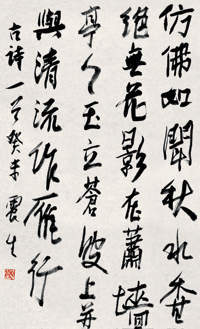 仿佛如聞秋水香
絕無花影在蕭墻
亭々玉立蒼波上并
與清流作雁行
古詩一首癸未震生